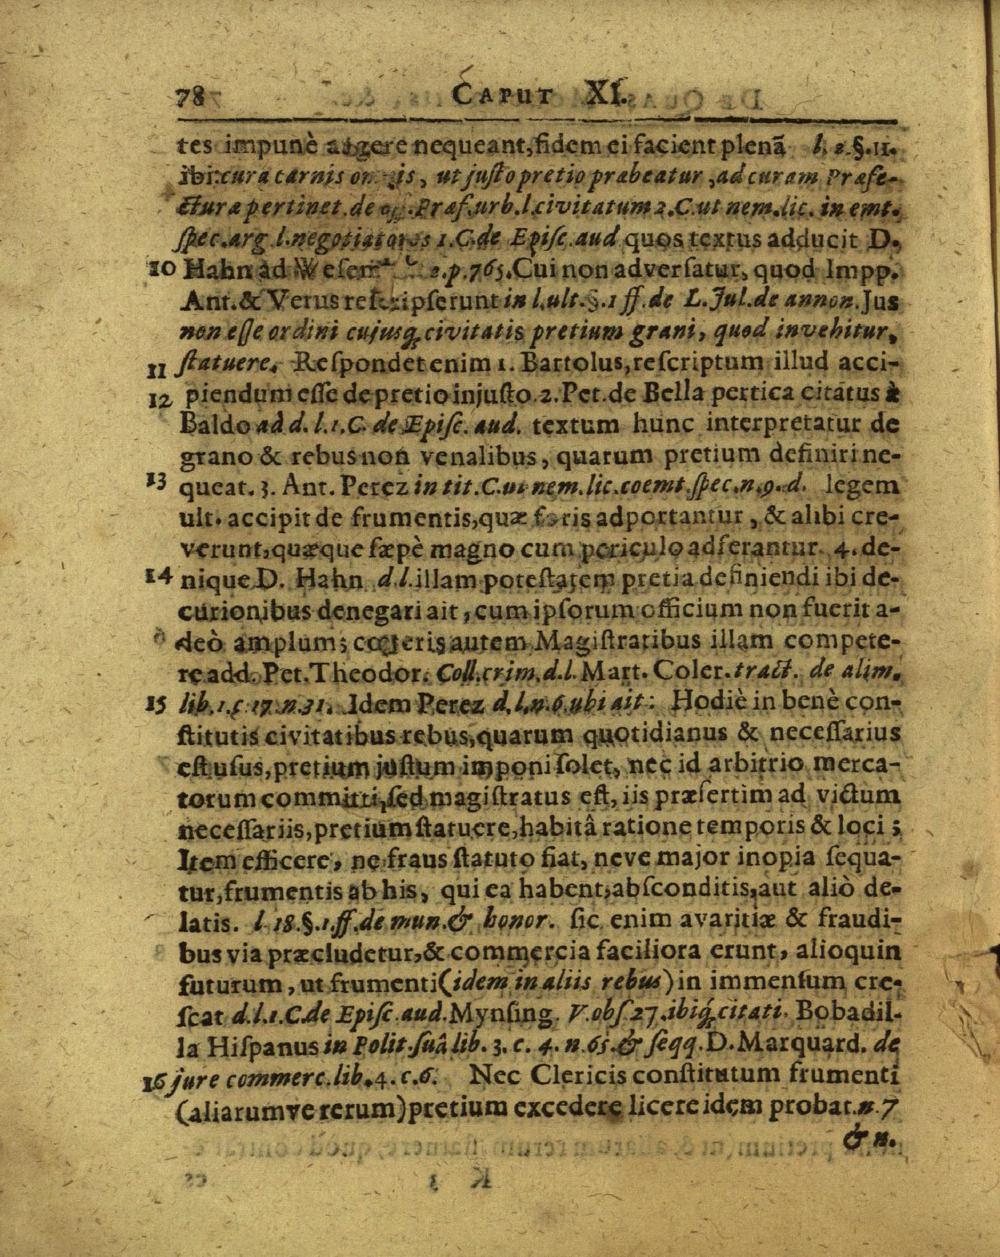 78 CAPUT XI.
tes impunè angere nequeant, fidem ei facient plenã l. 2. §. 11.
ibi: cura carnis omnis, ut justo pretio præbeatur, ad curam Præfe-
ctura pertinet. de off. Præf. urb. l. civitatum 2. C. ut nem. lic. in emt.
spec. arg. l. negotiatores 1. C. de Episc. aud quos textus adducit D.
10 Hahn ad 2. p. 765. Cui non adversatur, quod Impp.
Ant. & Verus rescripserunt in l. ult. §. 1 ff. de L. Jul. de annon. Jus
non esse ordini cujusq; civitatis pretium grani, quod invehitur,
11 statuere. Respondet enim 1. Bartolus, rescriptum illud acci-
12 piendum esse de pretio injusto. 2. Pet. de Bella pertica citatus à
Baldo ad d. l. 1. C. de Episc. aud. textum hunc interpretatur de
grano & rebus non venalibus, quarum pretium definiri ne-
13 queat. 3. Ant. Perez in tit. C. ut nem. lic. coemt. spec. n. 9. d. legem
ult. accipit de frumentis, quæ foris adportantur, & alibi cre-
verunt, quæque sæpè magno cum periculo adferantur. 4. de-
14 nique D. Hahn d. l. illam potestatem pretia definiendi ibi de-
curionibus denegari ait, cum ipsorum officium non fuerit a-
deò amplum; cœteris autem Magistratibus illam compete-
re add. Pet. Theodor. Coll. crim. d. l. Mart. Coler. tract. de alim.
15 lib. 1. c. 17. n. 31. Idem Perez d. l. n. 6. ubi ait: Hodiè in benè con-
stitutis civitatibus rebus, quarum quotidianus & necessarius
est usus, pretium justum imponi solet, nec id arbitrio merca-
torum committi, sed magistratus est, iis præsertim ad victum
necessariis, pretium statuere, habitâ ratione temporis & loci;
Item efficere, ne fraus statuto fiat, neve major inopia sequa-
tur, frumentis ab his, qui ea habent, absconditis, aut aliò de-
latis. l. 18. §. 1. ff. de mun. & honor. sic enim avaritiæ & fraudi-
bus via præcludetur, & commercia faciliora erunt, alioquin
futurum, ut frumenti (idem in aliis rebus) in immensum cre-
scat d. l. 1. C. de Episc. aud. Mynsing. V. obs. 27. ibiq; citati. Bobadil-
la Hispanus in Polit. suâ lib. 3. c. 4. n. 65. & seqq. D. Marquard. de
16 jure commerc. lib. 4. c. 6. Nec Clericis constitutum frumenti
(aliarumve rerum) pretium excedere licere idem probat. n. 7
& n.